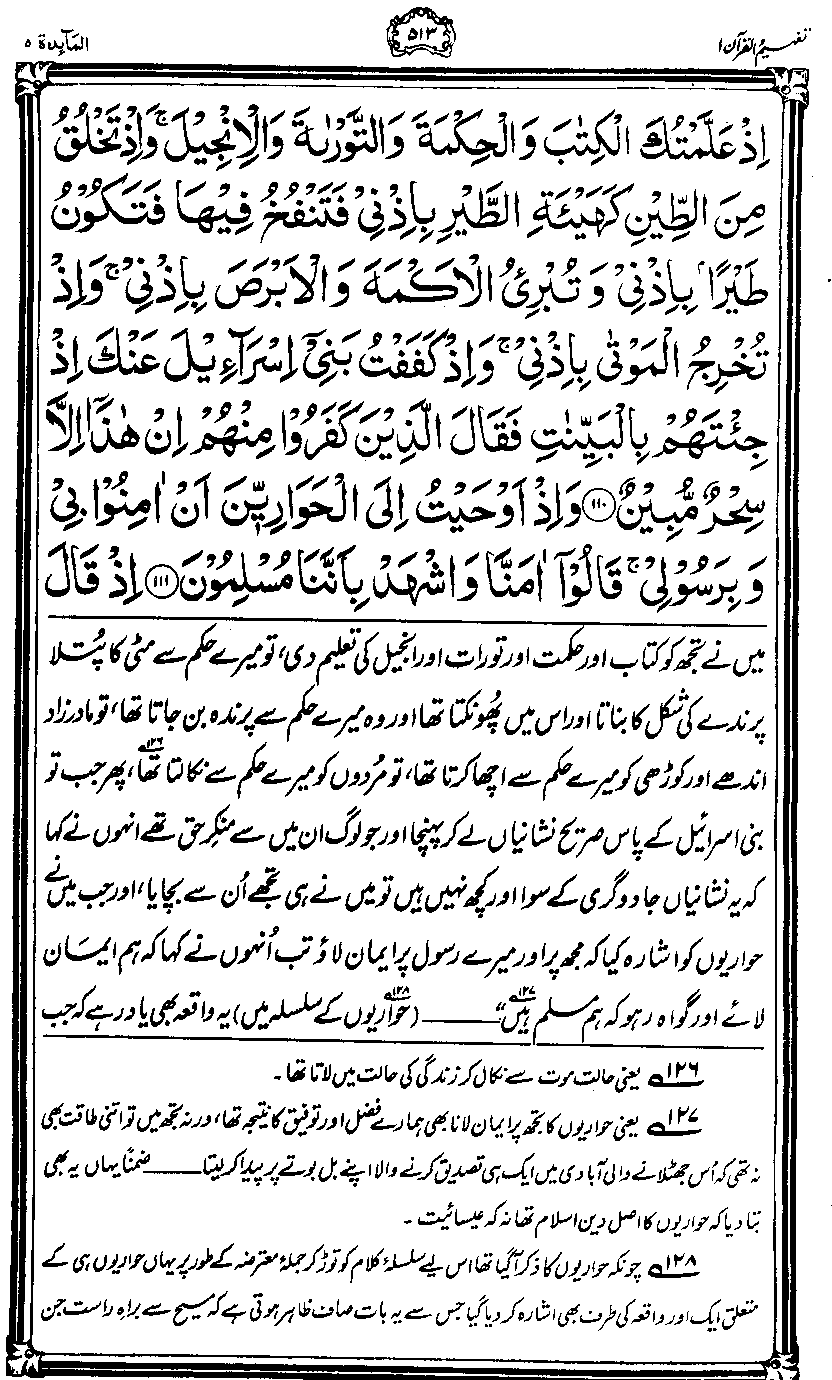 تفہیم القرآن ۱
۵۱۳
المآیدۃ ۵
اِذْ عَلَّمْتُكَ الْكِتٰبَ وَالْحِكْمَةَ وَالتَّوْرٰىةَ وَالْاِنْجِيْلَ ۚ وَاِذْ تَخْلُقُ
مِنَ الطِّيْنِ كَهَيْـَٔةِ الطَّيْرِ بِاِذْنِيْ فَتَنْفُخُ فِيْهَا فَتَكُوْنُ
طَيْرًۢا بِاِذْنِيْ وَتُبْرِئُ الْاَكْمَهَ وَالْاَبْرَصَ بِاِذْنِيْ ۚ وَاِذْ
تُخْرِجُ الْمَوْتٰى بِاِذْنِيْ ۚ وَاِذْ كَفَفْتُ بَنِيْٓ اِسْرَآءِيْلَ عَنْكَ اِذْ
جِئْتَهُمْ بِالْبَيِّنٰتِ فَقَالَ الَّذِيْنَ كَفَرُوْا مِنْهُمْ اِنْ هٰذَآ اِلَّا
سِحْرٌ مُّبِيْنٌ ۝۱۱۰ وَاِذْ اَوْحَيْتُ اِلَى الْحَوَارِيّٖنَ اَنْ اٰمِنُوْا بِيْ
وَبِرَسُوْلِيْ ۚ قَالُوْٓا اٰمَنَّا وَاشْهَدْ بِاَنَّنَا مُسْلِمُوْنَ ۝۱۱۱ اِذْ قَالَ
میں نے تجھ کو کتاب اور حکمت اور تورات اور انجیل کی تعلیم دی، تو میرے حکم سے مٹی کا پُتلا
پرندے کی شکل کا بناتا اور اس میں پھونکتا تھا اور وہ میرے حکم سے پرندہ بن جاتا تھا، تو مادر زاد
اندھے اور کوڑھی کو میرے حکم سے اچھا کرتا تھا، تو مُردوں کو میرے حکم سے نکالتا تھا۱۲۶، پھر جب تو
بنی اسرائیل کے پاس صریح نشانیاں لے کر پہنچا اور جو لوگ ان میں سے منکرِ حق تھے انہوں نے کہا
کہ یہ نشانیاں جادوگری کے سوا اور کچھ نہیں ہیں تو میں نے ہی تجھے اُن سے بچایا، اور جب میں نے
حواریوں کو اشارہ کیا کہ مجھ پر اور میرے رسول پر ایمان لاؤ تب اُنھوں نے کہا کہ ہم ایمان
لائے اور گواہ رہو کہ ہم مسلم ہیں۱۲۷" ـــــ (حواریوں۱۲۸ کے سلسلہ میں) یہ واقعہ بھی یاد رہے کہ جب
۱۲۶ یعنی حالت موت سے نکال کر زندگی کی حالت میں لاتا تھا۔
۱۲۷ یعنی حواریوں کا تجھ پر ایمان لانا بھی ہمارے فضل اور توفیق کا نتیجہ تھا، ورنہ تجھ میں تو اتنی طاقت بھی
نہ تھی کہ اُس جھٹلانے والی آبادی میں ایک ہی تصدیق کرنے والا اپنے بل بوتے پر پیدا کر لیتا ـــــ ضمناً یہاں یہ بھی
بتا دیا کہ حواریوں کا اصل دین اسلام تھا نہ کہ عیسائیت۔
۱۲۸ چونکہ حواریوں کا ذکر آ گیا تھا اس لیے سلسلۂ کلام کو توڑ کر جملۂ معترضہ کے طور پر یہاں حواریوں ہی کے
متعلق ایک اور واقعہ کی طرف بھی اشارہ کر دیا گیا جس سے یہ بات صاف ظاہر ہوتی ہے کہ مسیح سے براہِ راست جن